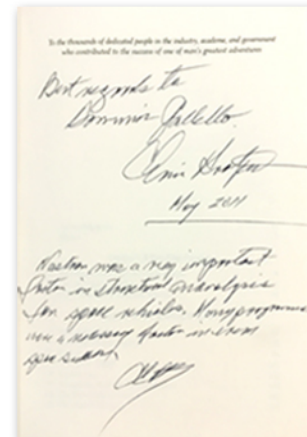 To the thousands of dedicated people in the industry, academe, and government
who contributed to the success of one of man's greatest adventures
Best regards to
Dominic
May 2011
Nastran was a very important
factor in structural analysis
for space vehicles. Many programs
was a necessary factor in
space